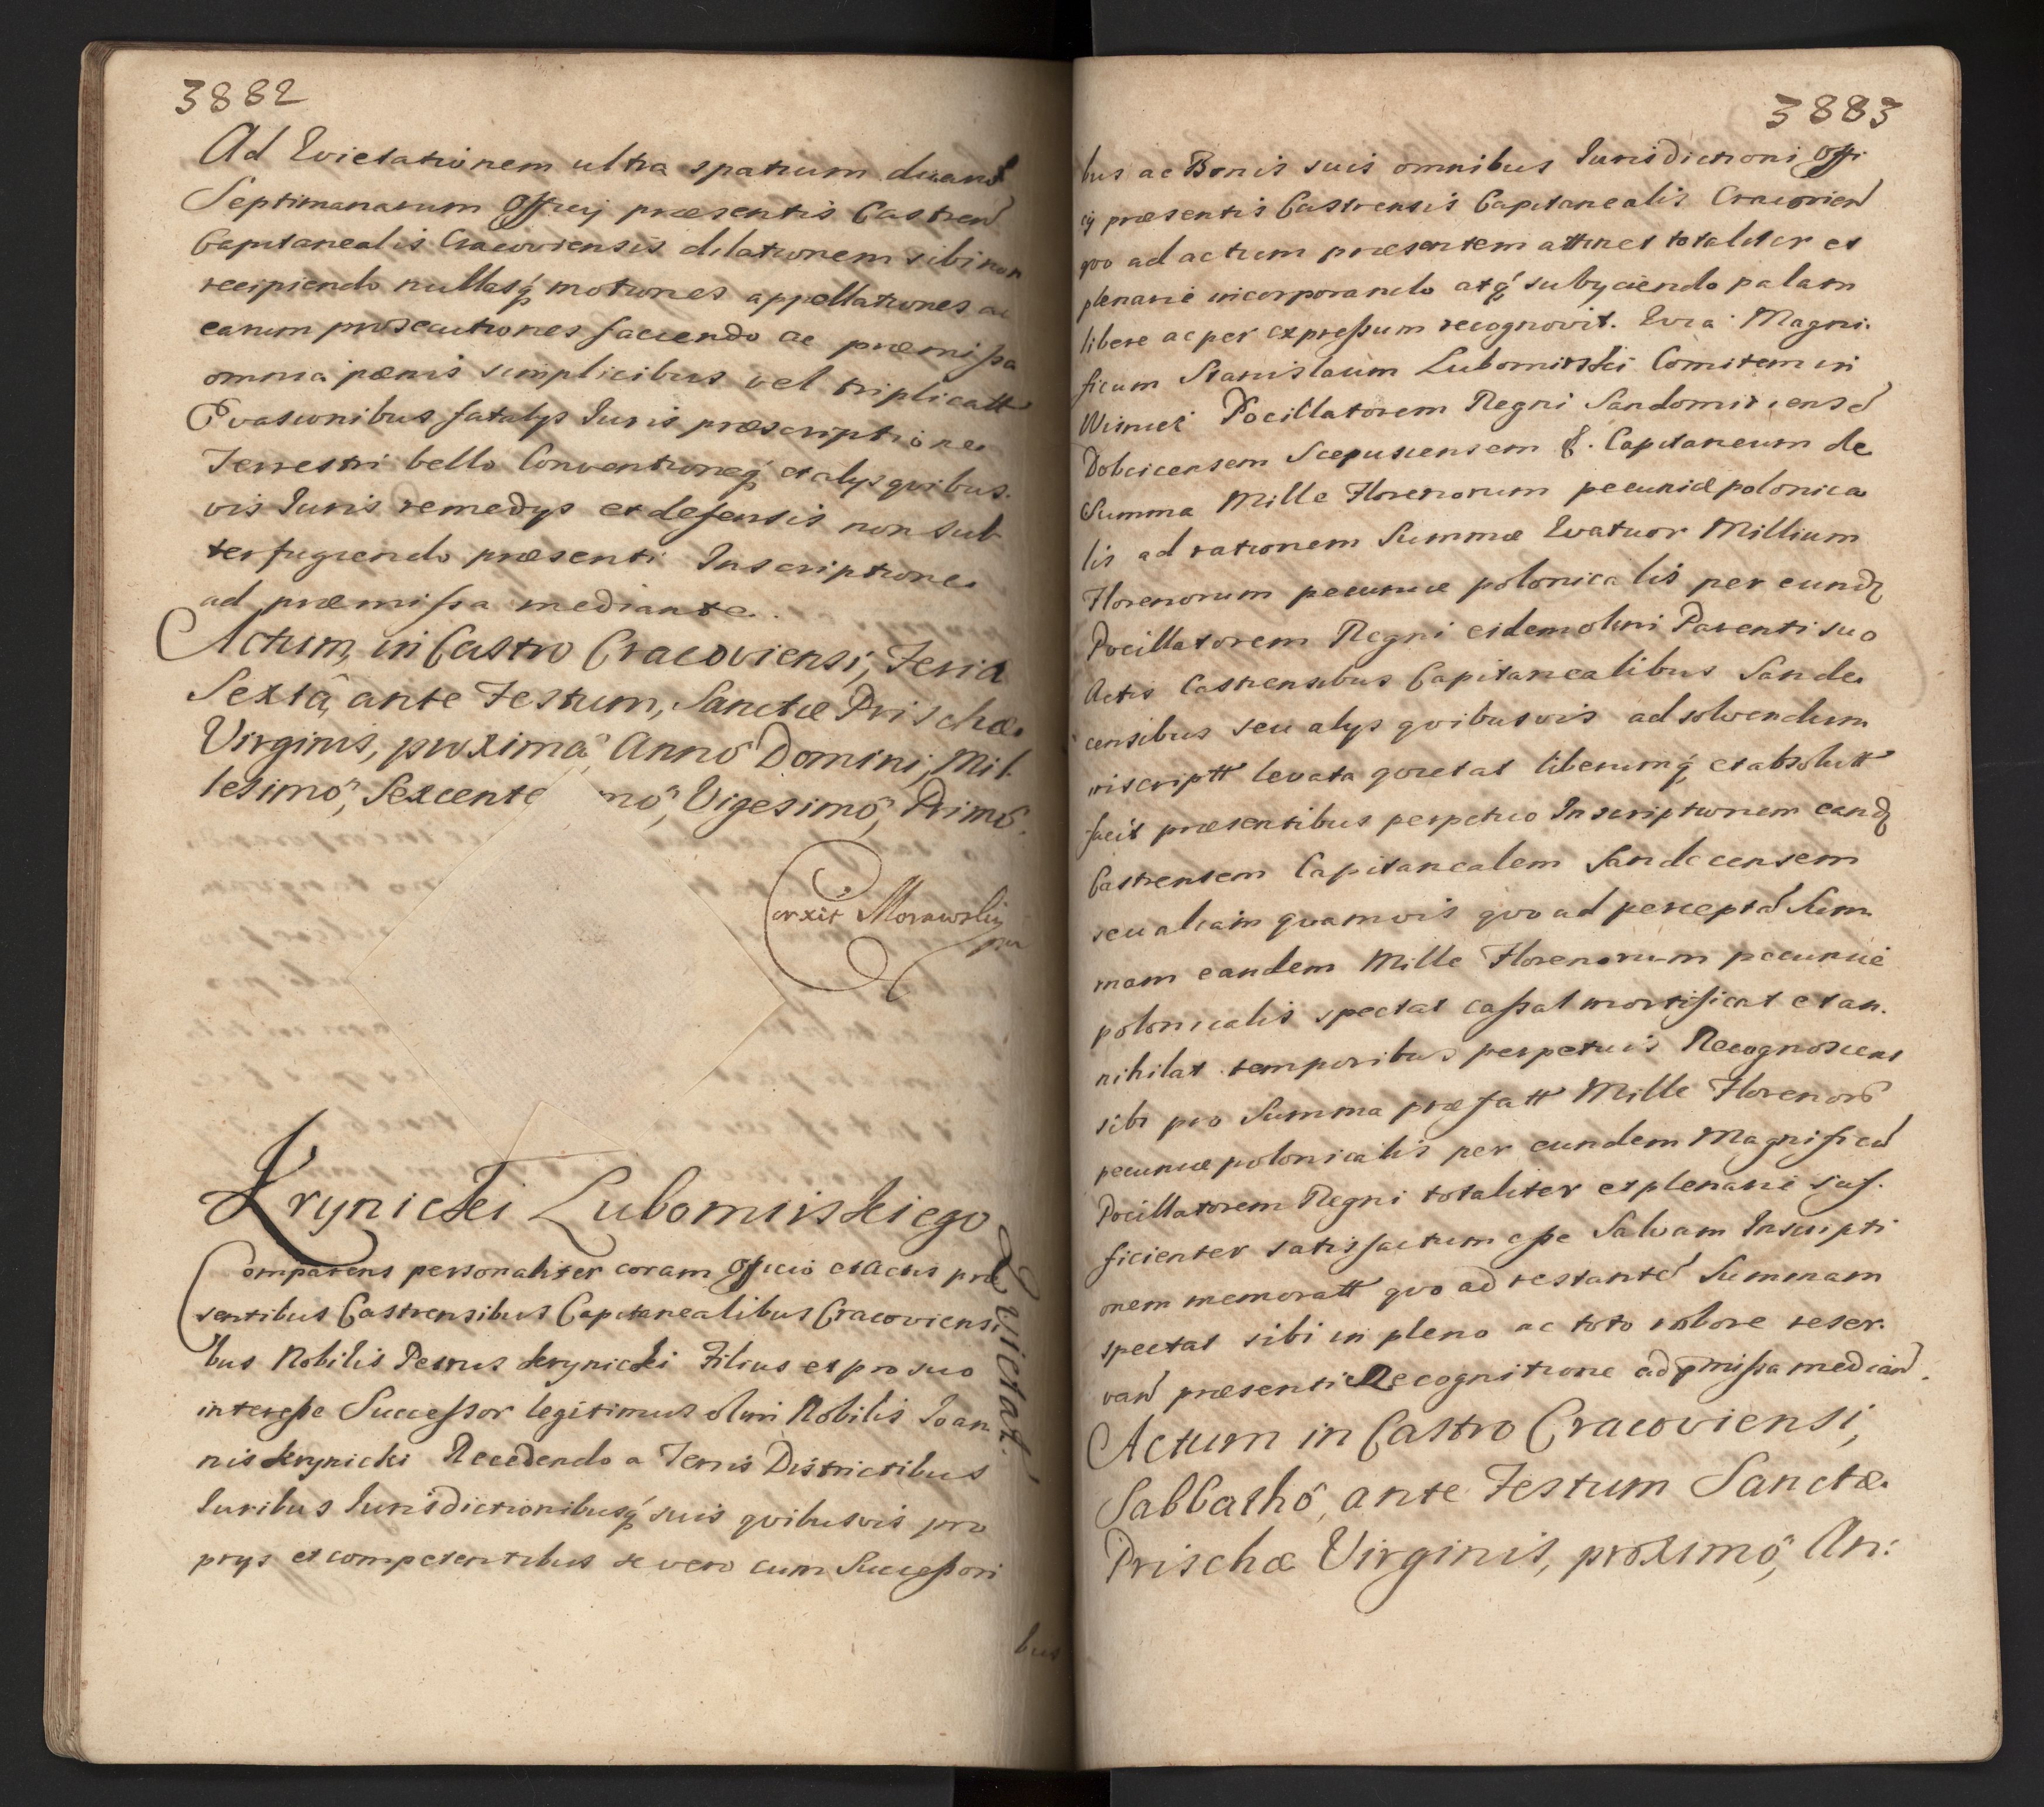 3882
Ad Quietationem ultra spatium duarū
Septimanarum Officij præsentis Castren̄
Capitanealis Cracoviensis dilationem sibi non
recipiendo nullasq́ motiones appellationes ac
earum prosecutiones faciendo ac præmissa
omnia pænis simplicibus vel triplicatt
Evasionibus fatalys Juris præscriptione
Terrestri bello Conventioneq́ et alys quibus
vis Juris remedys et defensis non sub
terfugiendo præsenti Inscriptione
ad præmissa mediante.
Actum, in Castro Cracoviensi, Feria
Sexta, ante Festum, Sanctæ Prischæ
Virginis, proxima, Anno Domini, Mil
lesimo, Sexcente mo, Vigesimo, Primo.
Morawsky
Krynicki Lubomirskiego
Quietat.
Comparens personaliter coram Officio et Actis præ
sentibus Castrensibus Capitanealibus Cracoviensi
bus Nobilis Petrus Krynicki Filius et pro suo
interesse Successor legitimus olim Nobilis Joan
nis Krynicki Recedendo a Terris Districtibus
Juribus Jurisdictionibusq́ suis quibusvis pro
prys et competentibus se vero cum Successori
bus
3883
bus ac Bonis suis omnibus Jurisdictioni Offi
cij præsentis Castrensis Capitanealis Cracovien̄
quo ad actum præsentem attinet totaliter et
plenarie incorporando atq́ subyciendo palam
libere ac per expressum recognovit. Quia Magni
ficum Stanislaum Lubomirski Comitem in
Wisnicz Pocillatorem Regni Sandomiriensē
Dobcicensem Scepusiensem &. Capitaneum de
Summa Mille Florenorum pecuniæ polonica
lis ad rationem Summæ Quatuor Millium
Florenorum pecuniæ polonicalis per eundɋ
Pocillatorem Regni eidem olim Parenti suo
Actis Castrensibus Capitanealibus Sande
censibus seu alys quibusvis ad solvendum
inscriptt levata quietat liberumq́ et absolutt
facit præsentibus perpetuo Inscriptionem eandɋ
Castrensem Capitanealem Sandecensem
seu aliam quamvis quo ad perceptā Sum
mam eandem Mille Florenorum pecuniæ
polonicalis spectat cassat mortificat et an
nihilat temporibus perpetuis Recognoscens
sibi pro Summa præfatt Mille Florenorū
pecuniæ polonicalis per eundem Magnificū
Pocillatorem Regni totaliter et plenarie suf
ficienter satisfactum esse Salvam Inscripti
onem memoratt quo ad restantē Summam
spectat sibi in pleno ac toto robore reser
van̄ præsenti Recognitione ad pmissa median̄.
Actum in Castro Cracoviensi,
Sabbatho, ante Festum Sanctæ
Prischæ Virginis, proximo, An: